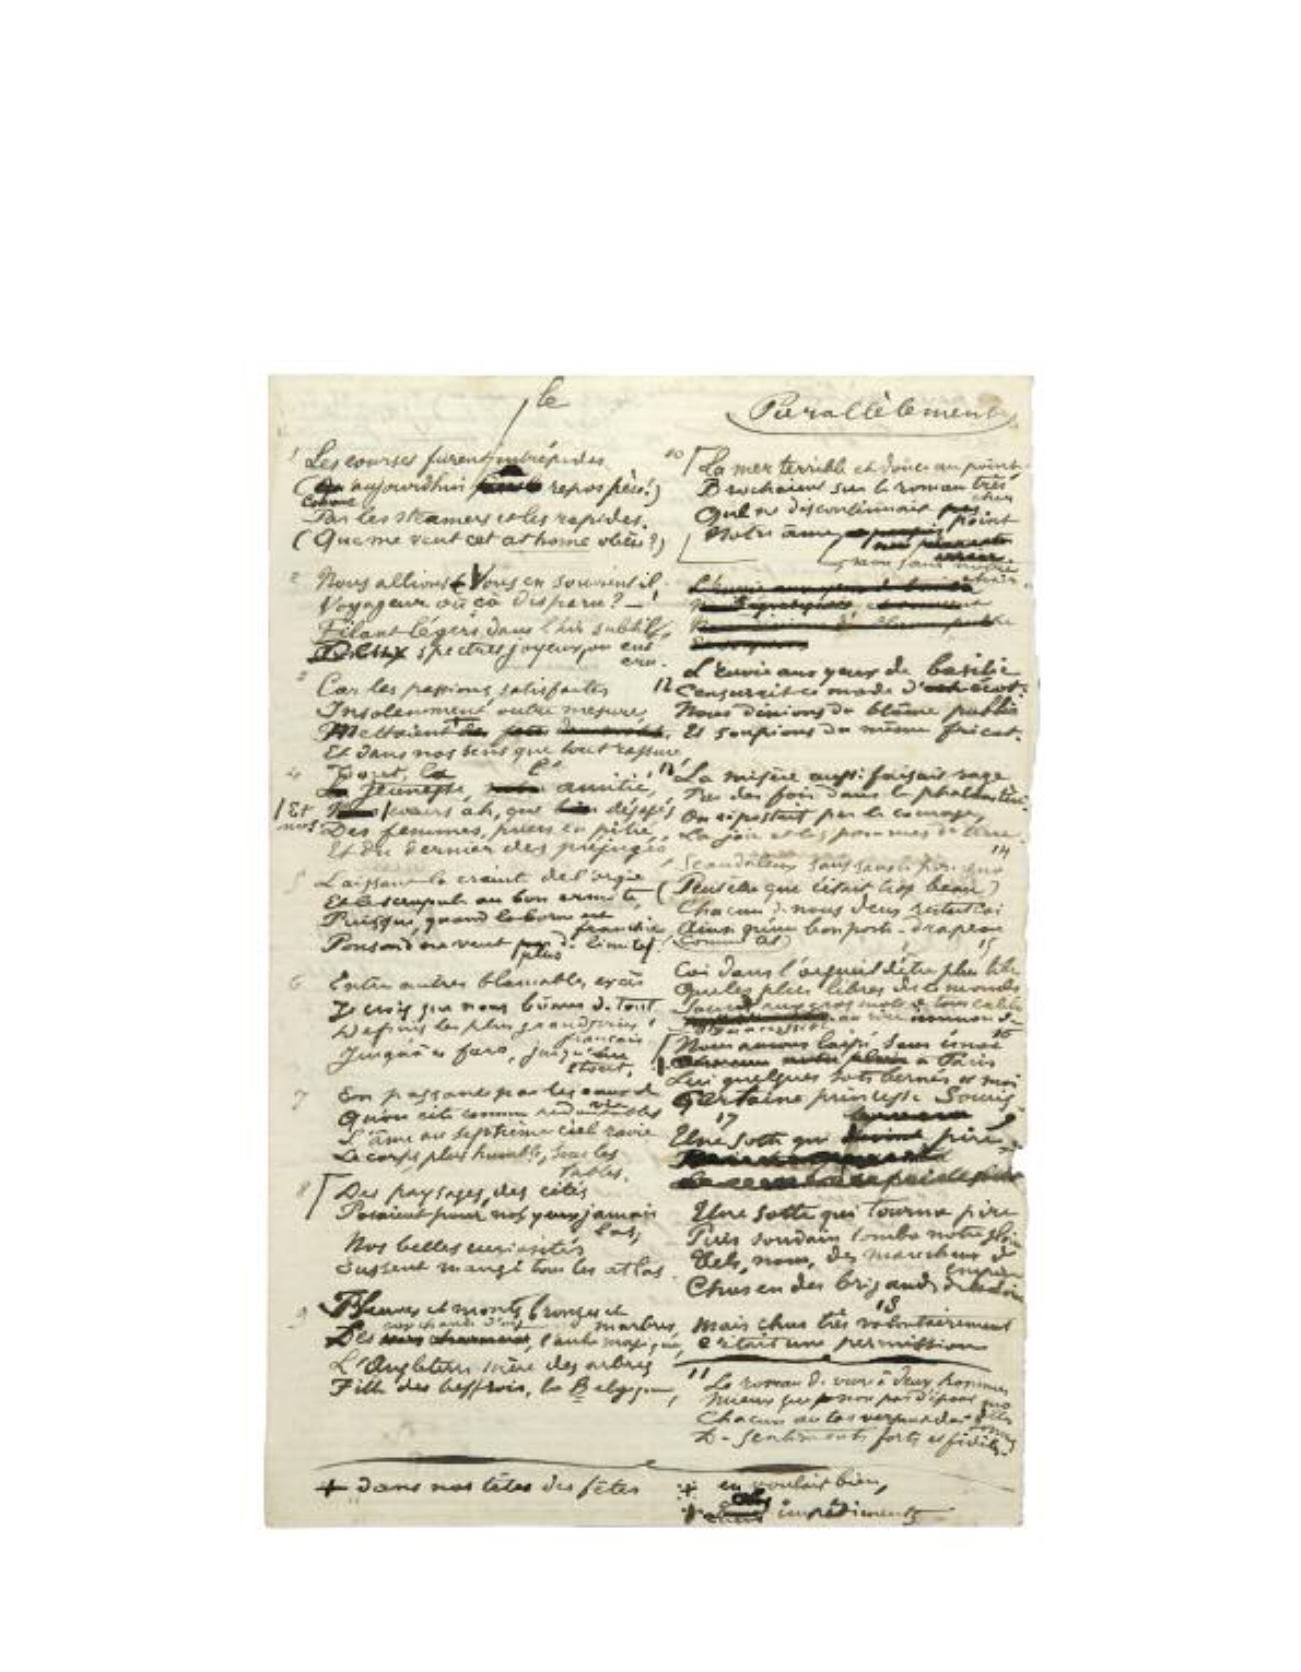 le
Parallèlement
1 Les courses furent intrépides
(aujourdhui repos pèse!)
Comme
Par les steamers et les rapides.
(Que me veut cet at home obèse?)
2 Nous allions, Vous en souvient-il
Voyageur où çà disparu? —
Filant légers dans l'air subtil,
Deux spectres joyeux, on eut
cru.
3 Car les passions satisfaites
Insolemment outre mesure
Mettaient +
Et dans nos sens que tout rassure
4 Tout, la
La jeunesse, l' amitié,
Et nos cœurs ah, que dégagés
Des femmes, prises en pitié
Et du dernier des préjugés
5 Laissant la crainte de l'orgie
Et le scrupule au bon ermite,
Puisque, quand la borne est
franchie
Ponsard ne veut plus de limite.
6 Entre autres blamables excès
Je crois que nous bûmes de tout
Depuis les plus grands vins
français
Jusqu'à ce faro, jusqu'au
stout,
7 En passant par les eaux de
vie
Qu'on cite comme redoutables
L'âme au septième ciel ravie
Le corps plus humble, sous les
tables.
8 Des paysages, des cités
Posaient pour nos yeux jamais
las;
Nos belles curiosités
Eussent mangé tous les atlas.
9 Fleuves et monts bronzes et
marbres,
Les couchants d'or, l'aube magique,
L'Angleterre mère des arbres
Fille des beffrois, la Belgique,
+ dans nos têtes des fêtes
10 La mer terrible et douce au point
Brochaient sur le roman très
cher
Que ne discontinuait
point
Notre âme
non sans notre
chair.
L'envie aux yeux de basilic
12 Censurait ce mode d'écot:
Nous dînions du blâme public
Et soupions du même fricot.
13 La misère aussi faisait rage
Par des fois dans le phalanstère
On ripostait par le courage,
La joie et les pommes de terre.
14
Scandaleux sans savoir pourquoi
(Peut être que c'était trop beau)
Chacun de nous deux restait coi
Ainsi qu'un bon porte-drapeau
(Comme tel)
15
Coi dans l'orgueil d'être plus libre
Que les plus libres de ce monde
Sourd aux gros mots de tous calibres
au rire immonde
16
Nous avions laissé sans émoi
à Paris
Lui quelques sots bernés et moi
Certaine princesse Souris
17
Une sotte qui pire
Une sotte qui tourna pire
Puis soudain tomba notre gloire
Tels, nous, des maréchaux de
empire
Chus en des brigands de la Loire
18
Mais chus très volontairement
C'était une permission
11 Le roman de vivre à deux hommes
Mieux que non pas d'époux
Chacun au tas versant des
sommes
De sentiments forts et fidèles.
+ en voulait bien,
impédiments